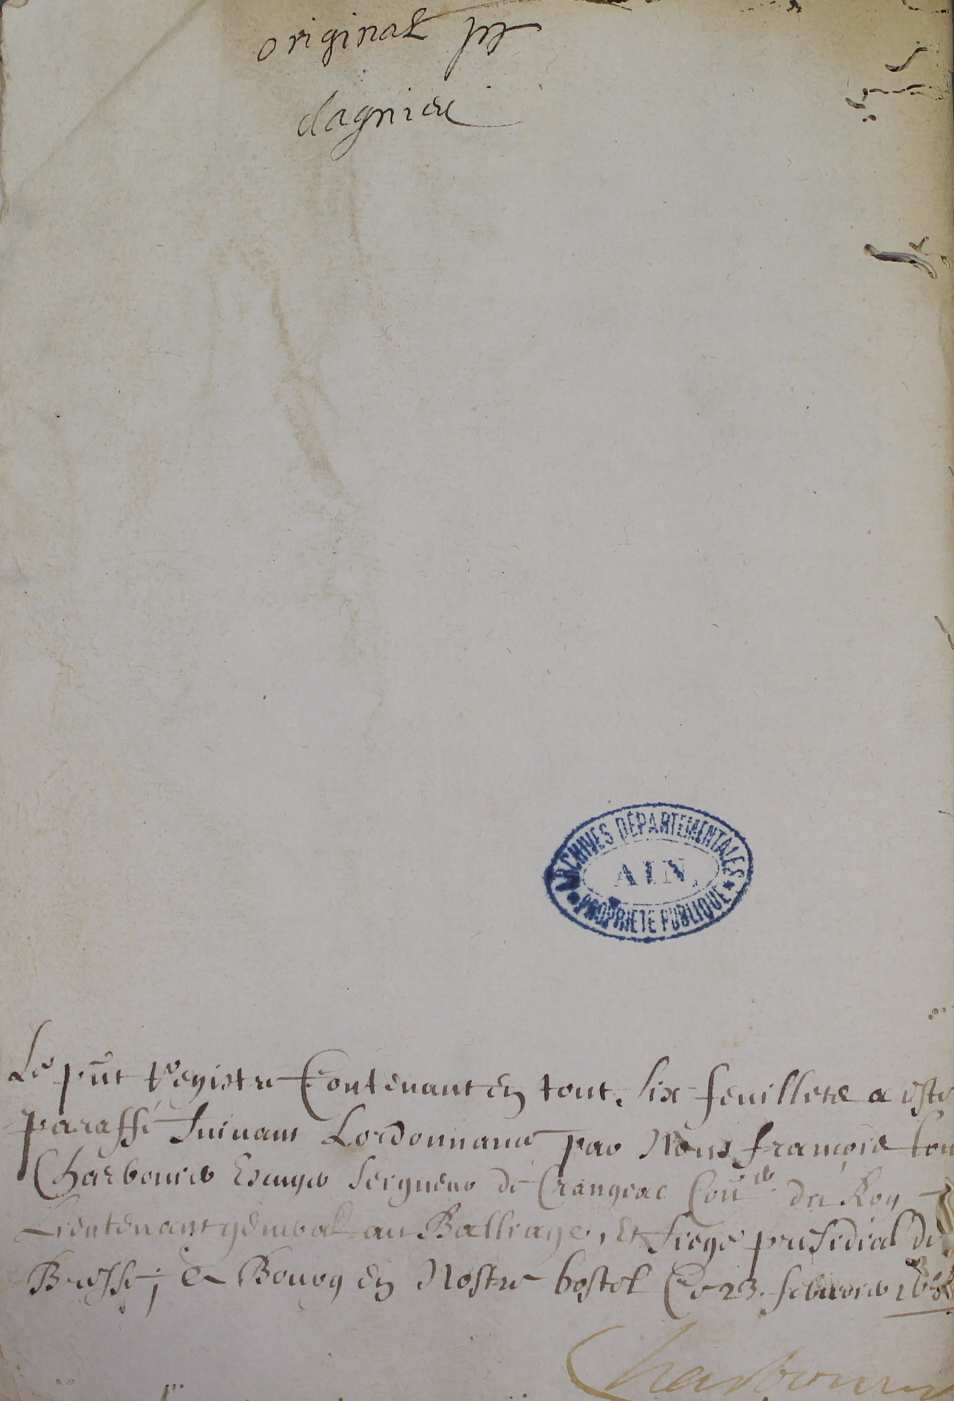 original pr
dagnieu
ARCHIVES DÉPARTEMENTALES
AIN
PROPRIÉTÉ PUBLIQUE
Le pñt Registre Contenant En tout Six feuilletz a esté
paraffé Suivant Lordonnance par Nous françois
Charbonnier Escuyer Seigneur de Crangeac Coñer du Roy
Lieutenant general au Balliage, Et Siege presidial de
Bresse, Bourg En Nostre hostel Ce 23 febvrier
Charbonnier